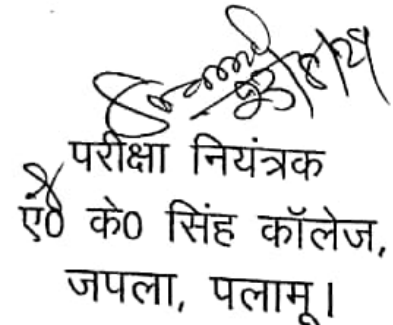 परीक्षा नियंत्रक
ए० के० सिंह कॉलेज,
जपला, पलामू।